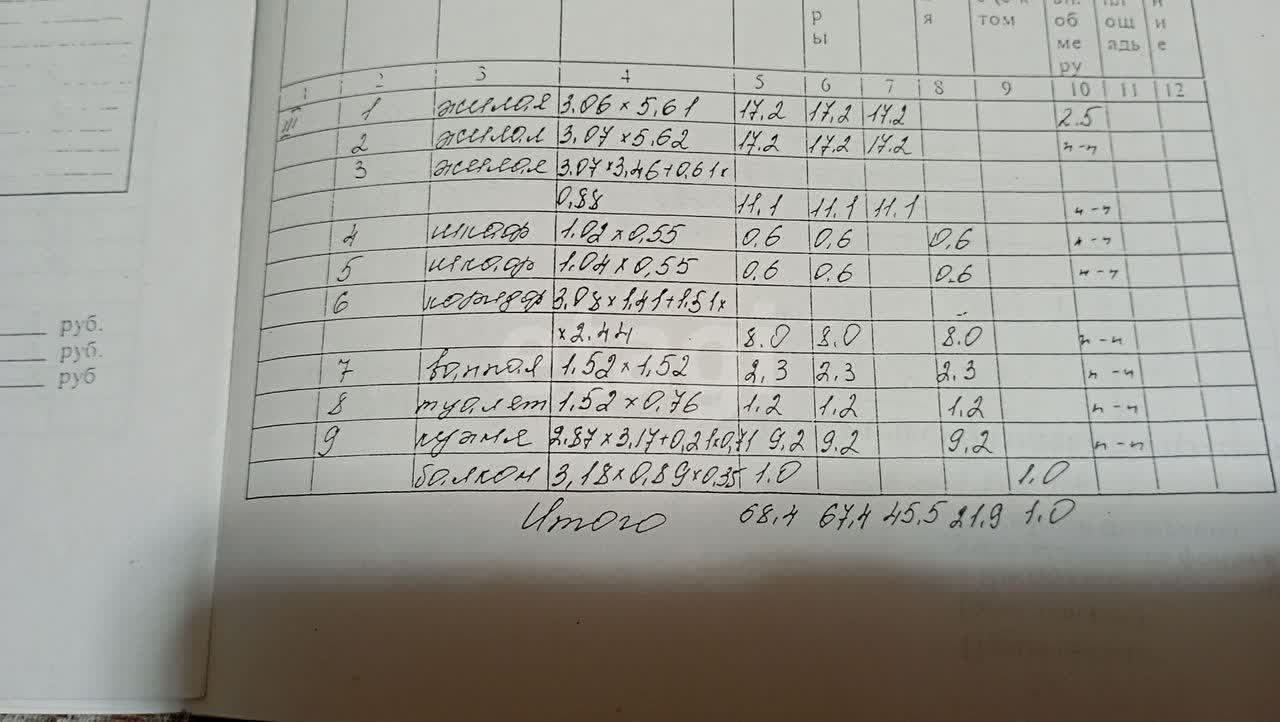 р я том об ош и
ы ме адь е
ру
1 2 3 4 5 6 7 8 9 10 11 12
III 1 жилая 3.06 × 5,61 17,2 17,2 17.2 2.5
2 жилая 3.07 × 5.62 17.2 17.2 17.2 "-"
3 жилая 3.07×3,46+0,61×
0,88 11.1 11.1 11.1 "-"
4 шкаф 1.02 × 0,55 0,6 0,6 0,6 "-"
5 шкаф 1.04 × 0,55 0.6 0.6 0.6 "-"
6 коридор 3.08×1,41+1,51×
×2.44 8.0 8.0 8.0 "-"
руб.
7 ванная 1.52 × 1,52 2,3 2.3 2.3 "-"
руб.
8 туалет 1,52 × 0,76 1.2 1.2 1.2 "-"
руб
9 кухня 2.87×3,17+0,21×0,71 9,2 9.2 9,2 "-"
балкон 3,18×0,89×0,35 1.0 1.0
Итого 68,4 67,4 45,5 21.9 1.0